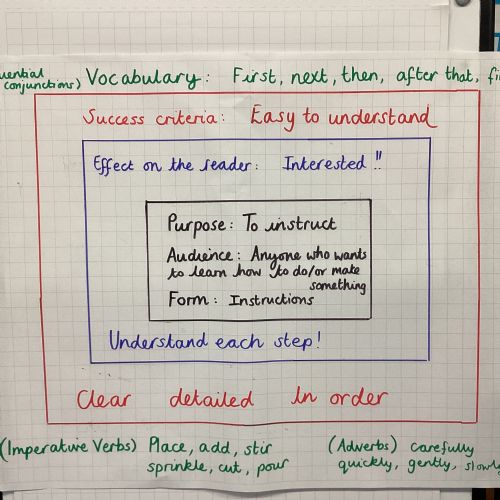 uential Vocabulary: First, next, then, after that, fi
conjunctions)
Success criteria: Easy to understand
Effect on the reader: Interested!!
Purpose: To instruct
Audience: Anyone who wants
to learn how to do/or make
something
Form: Instructions
Understand each step!
Clear detailed In order
(Imperative Verbs) Place, add, stir
sprinkle, cut, pour
(Adverbs) carefully
quickly, gently, slowly